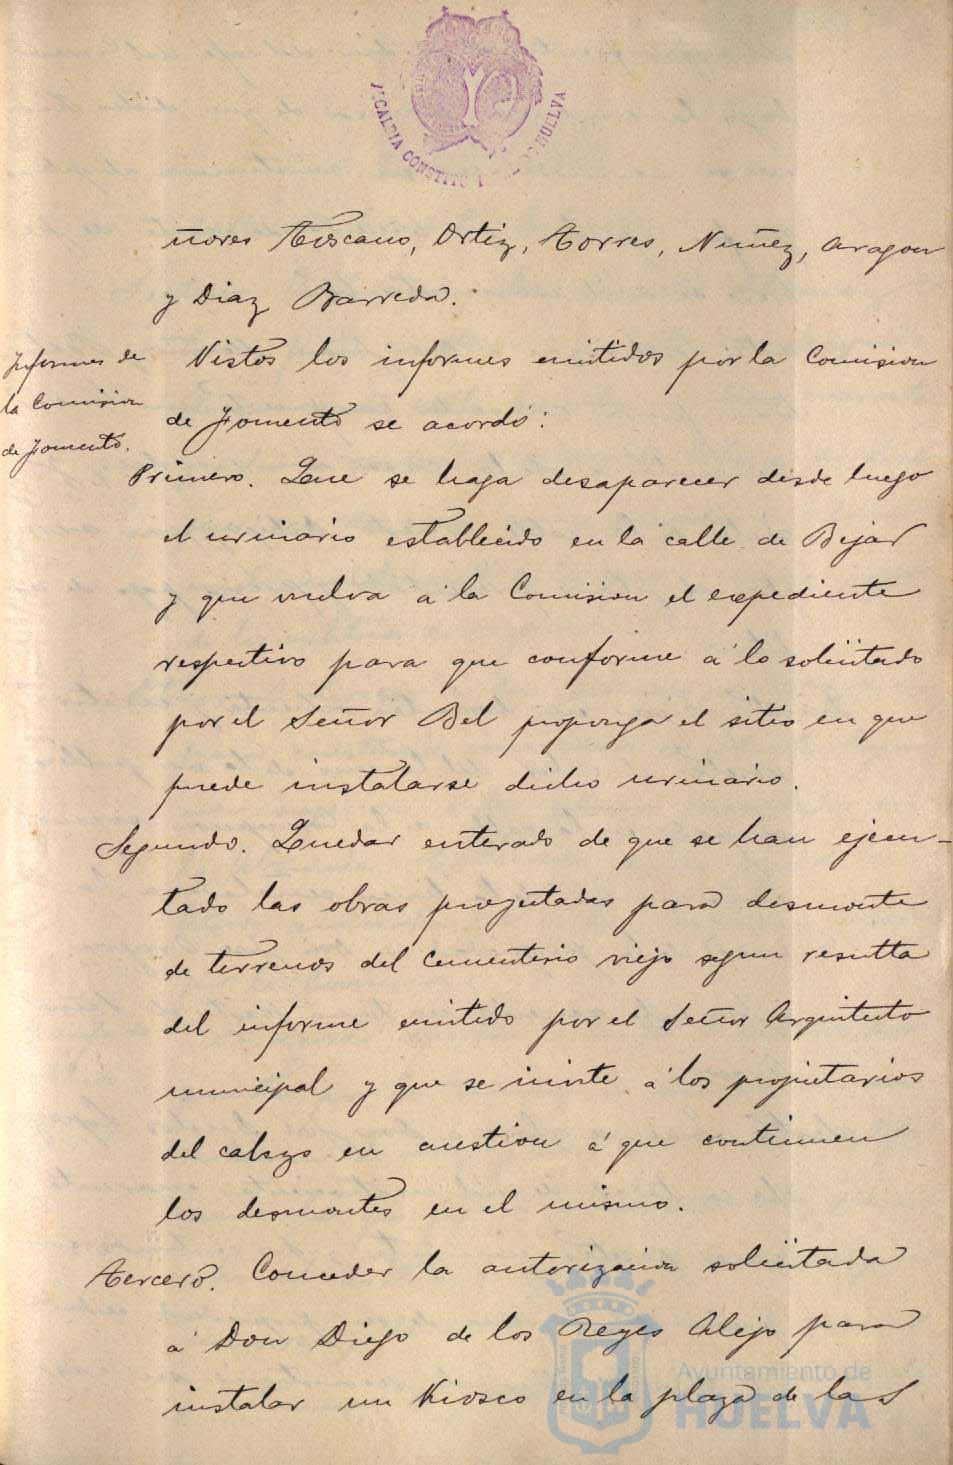 ALCALDIA CONSTITU HUELVA
ñores Toscano, Ortiz, Torres, Nuñez, Aragon
y Diaz Barreda.
Informes de
la Comision
de Fomento.
Vistos los informes emitidos por la Comision
de Fomento se acordó:
Primero. Que se haga desaparecer desde luego
el urinario establecido en la calle de Bejar
y que vuelva á la Comision el expediente
respectivo para que conforme á lo solicitado
por el Señor Bel proponga el sitio en que
puede instalarse dicho urinario.
Segundo. Quedar enterado de que se han ejecu-
tado las obras proyectadas para desmonte
de terrenos del Cementerio viejo segun resulta
del informe emitido por el Señor Arquitecto
municipal y que se invite á los propietarios
del cabezo en cuestion á que continuen
los desmontes en el mismo.
Tercero. Conceder la autorizacion solicitada
á Don Diego de los Reyes Alejo para
instalar un Kiosco en la plaza de las
Ayuntamiento de
HUELVA